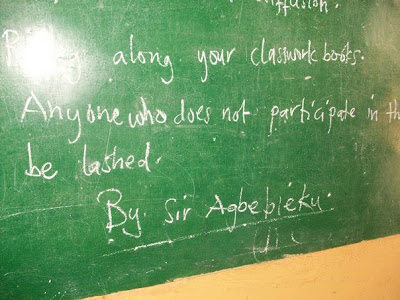 diffusion.
Bring along your classwork books.
Anyone who does not participate in th
be lashed.
By. Sir Agbebieku.